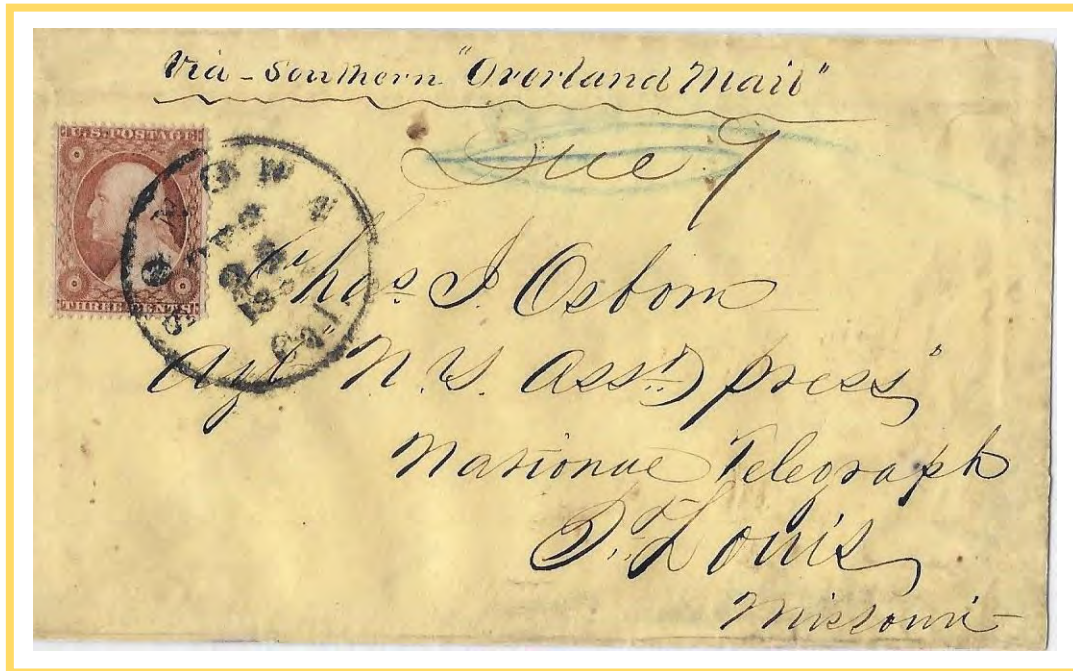 Via - Southern "Overland Mail"
Due 7
U.S. POSTAGE
THREE CENTS
Cal
Chas. I. Osborn
Agt. N.Y. Ass.d press"
National Telegraph
St. Louis
Missouri